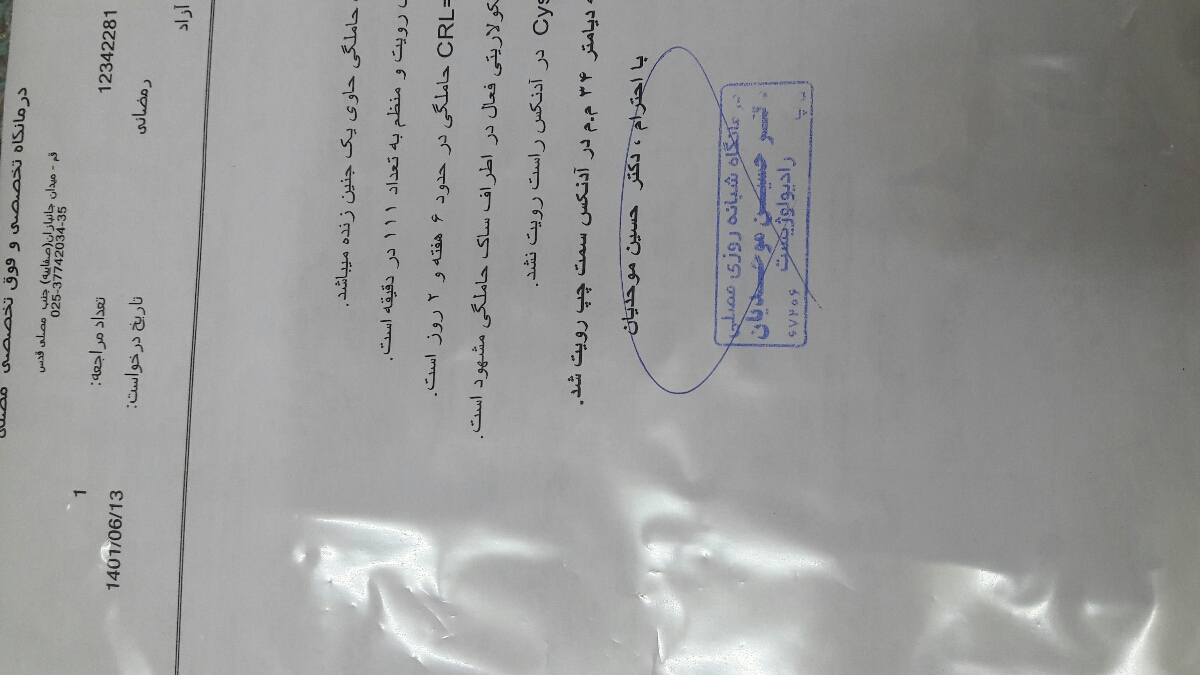 درمانگاه تخصصی و فوق تخصصی مصلی
قم - میدان جانبازان(صفاییه) جنب مصلی قدس
025-37742034-35
12342281
تعداد مراجعه: 1
رمضانی
تاریخ درخواست: 1401/06/13
آزاد
حاملگی حاوی یک جنین زنده میباشد.
رویت و منظم به تعداد ۱۱۱ در دقیقه است.
CRL= حاملگی در حدود ۶ هفته و ۲ روز است.
کولاریتی فعال در اطراف ساک حاملگی مشهود است.
Cys در آدنکس راست رویت نشد.
دیامتر ۳۴ م.م در آدنکس سمت چپ رویت شد.
با احترام ، دکتر حسین موحدیان
درمانگاه شبانه روزی مصلی
دکتر حسین موحدیان
رادیولوژیست